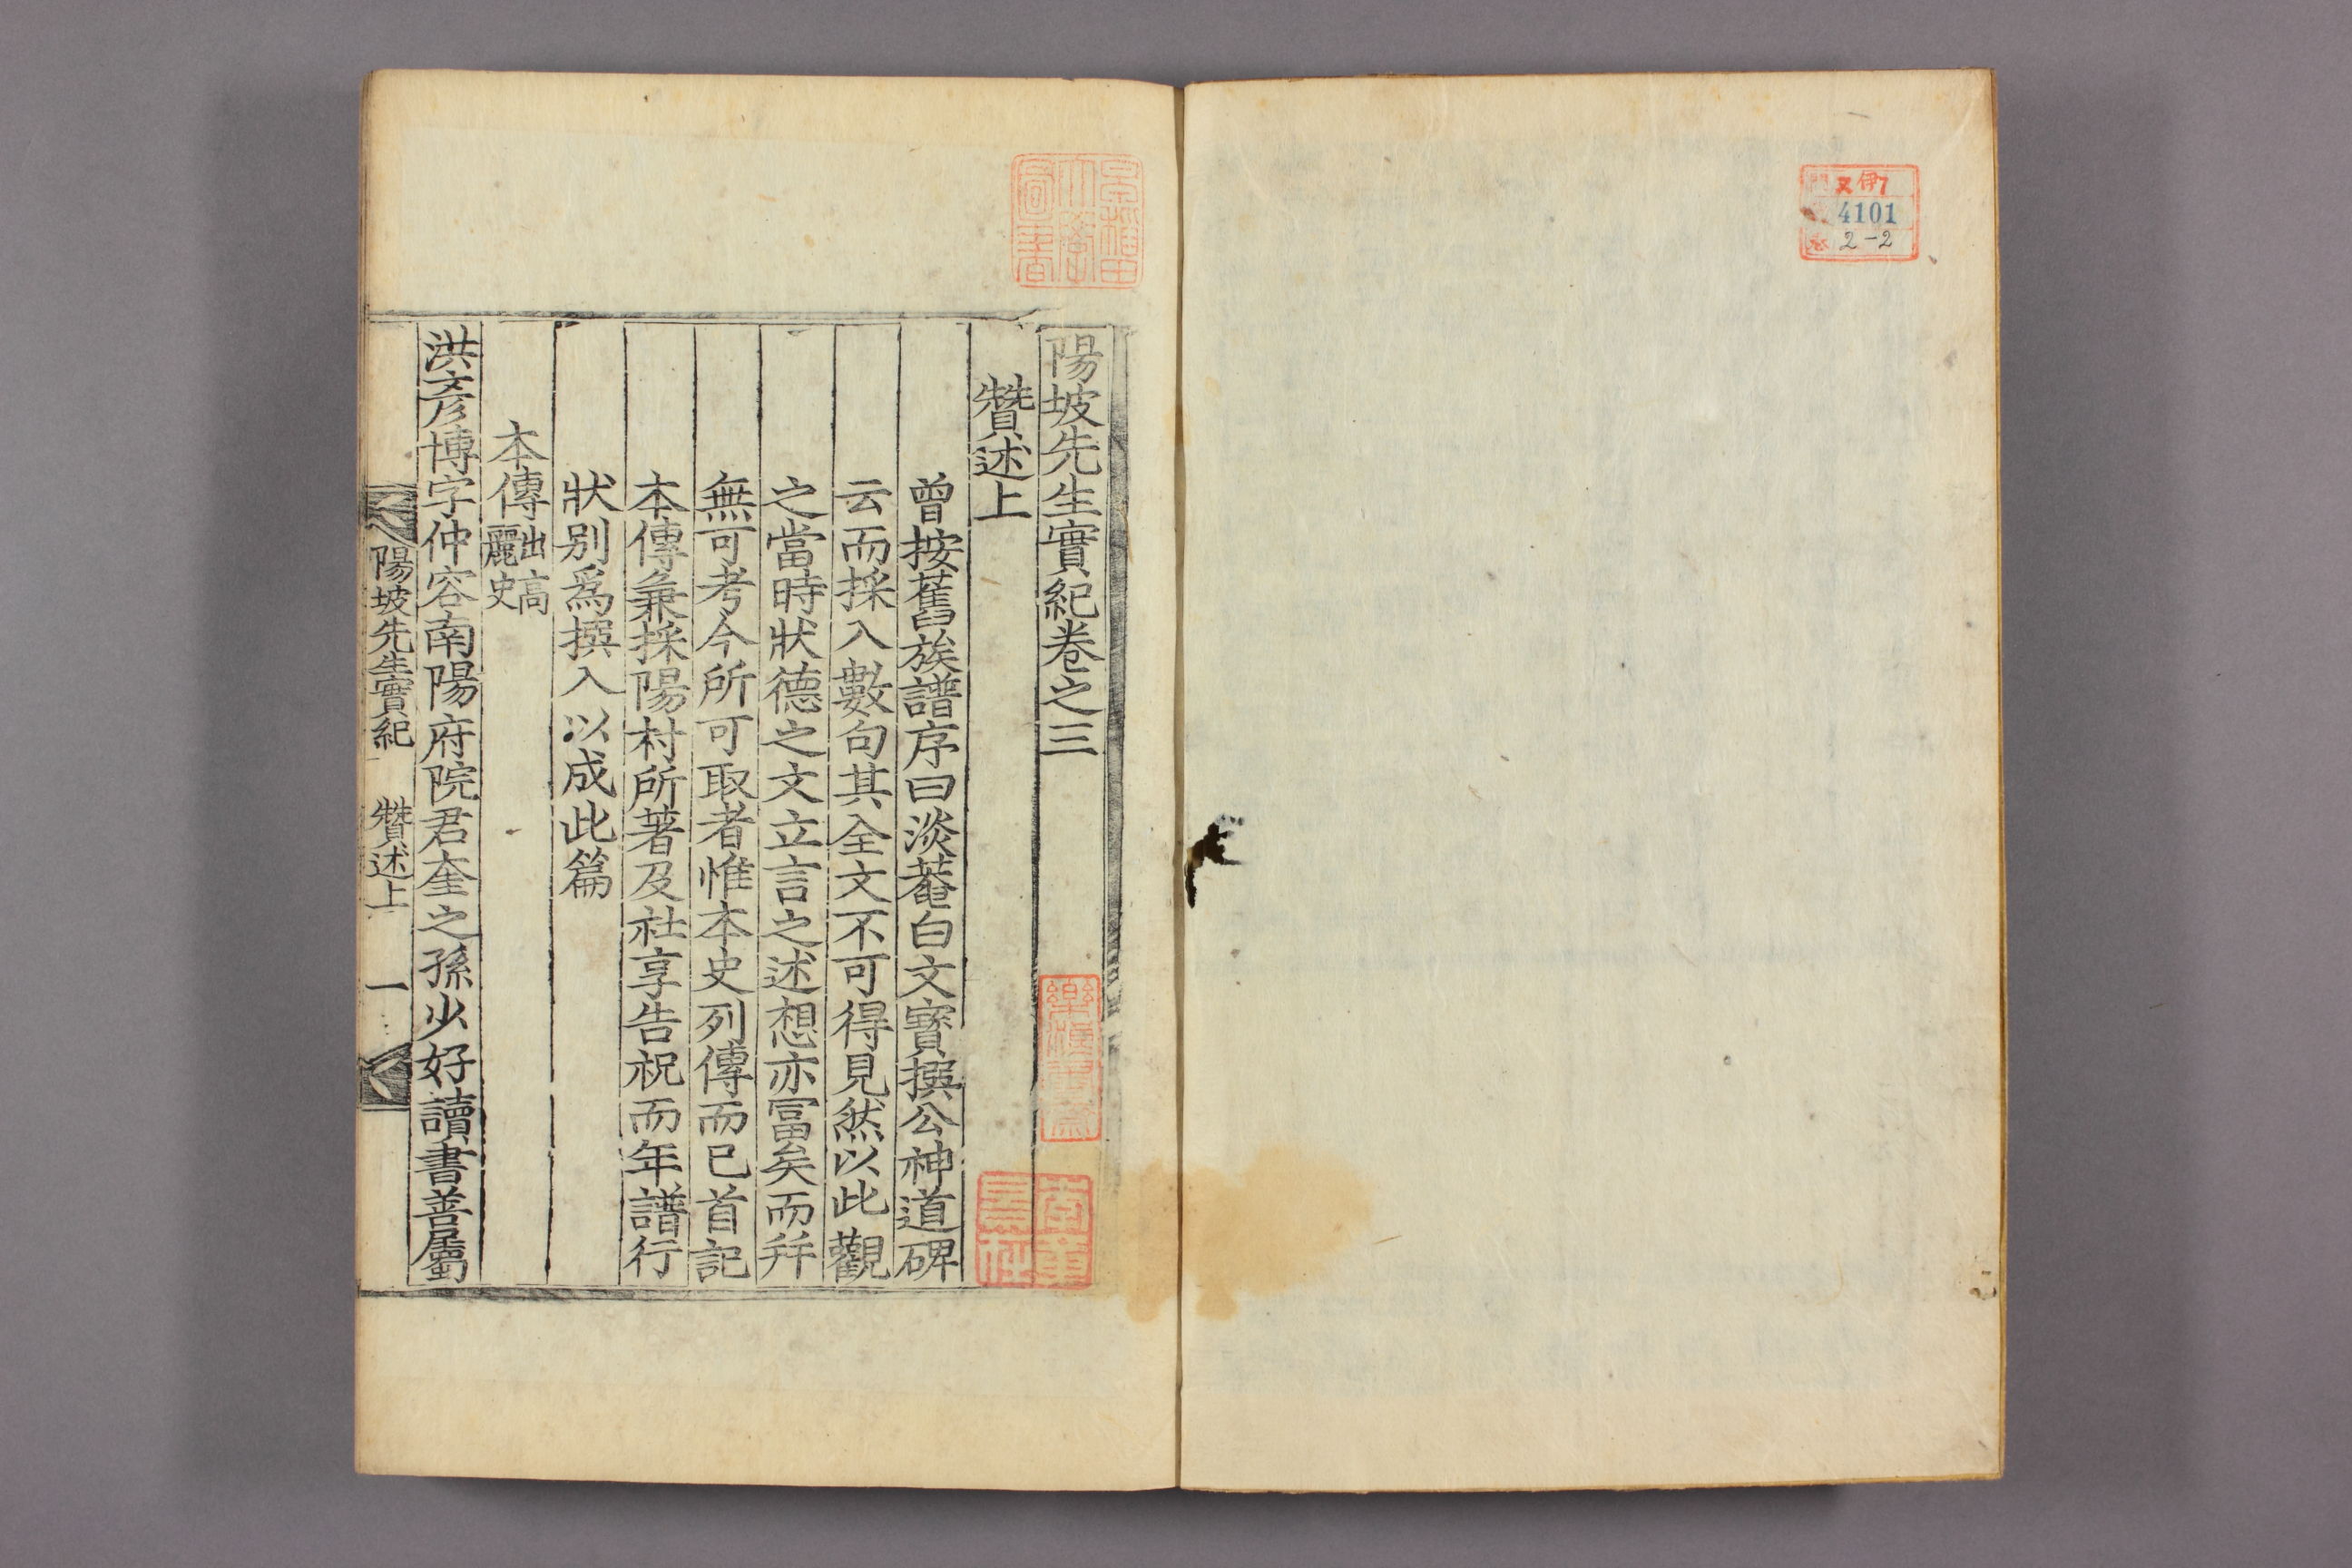 又 伊7
4101
2-2
陽坡先生實紀卷之三
贊述上
曾按舊族譜序曰淡菴白文寶撰公神道碑
云而採入數句其全文不可得見然以此觀
之當時狀德之文立言之述想亦富矣而幷
無可考今所可取者惟本史列傳而已首記
本傳兼採陽村所著及社享告祝而年譜行
狀別爲撰入以成此篇
本傳出高麗史
洪彥博字仲容南陽府院君奎之孫少好讀書善屬
陽坡先生實紀 贊述上 一